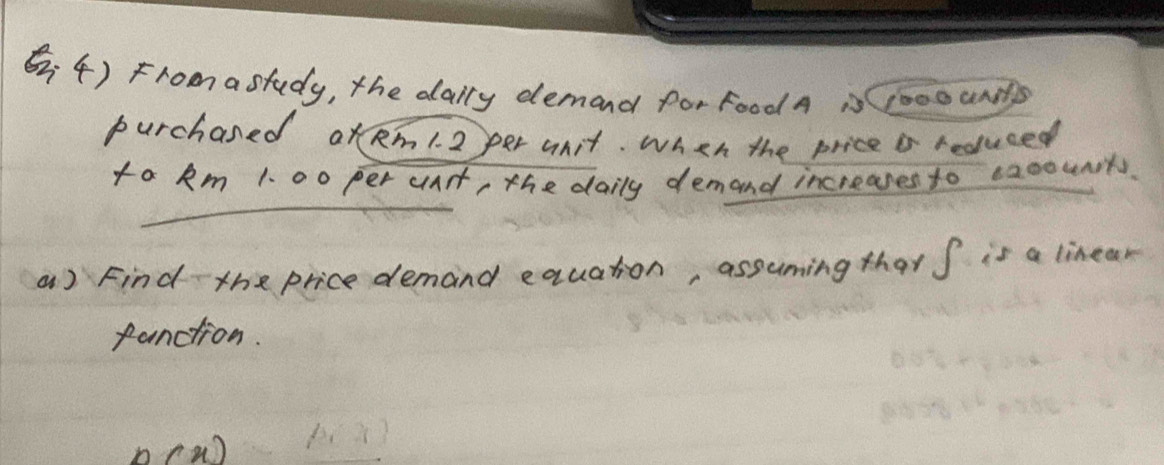 4) From a study, the daily demand for Food A is 1000 units
purchased at Rm 1.2 per unit. When the price is reduced
to Rm 1.00 per unit, the daily demand increases to 1200 units.
a) Find the price demand equation, assuming that f is a linear
function.
p(x) p(x)